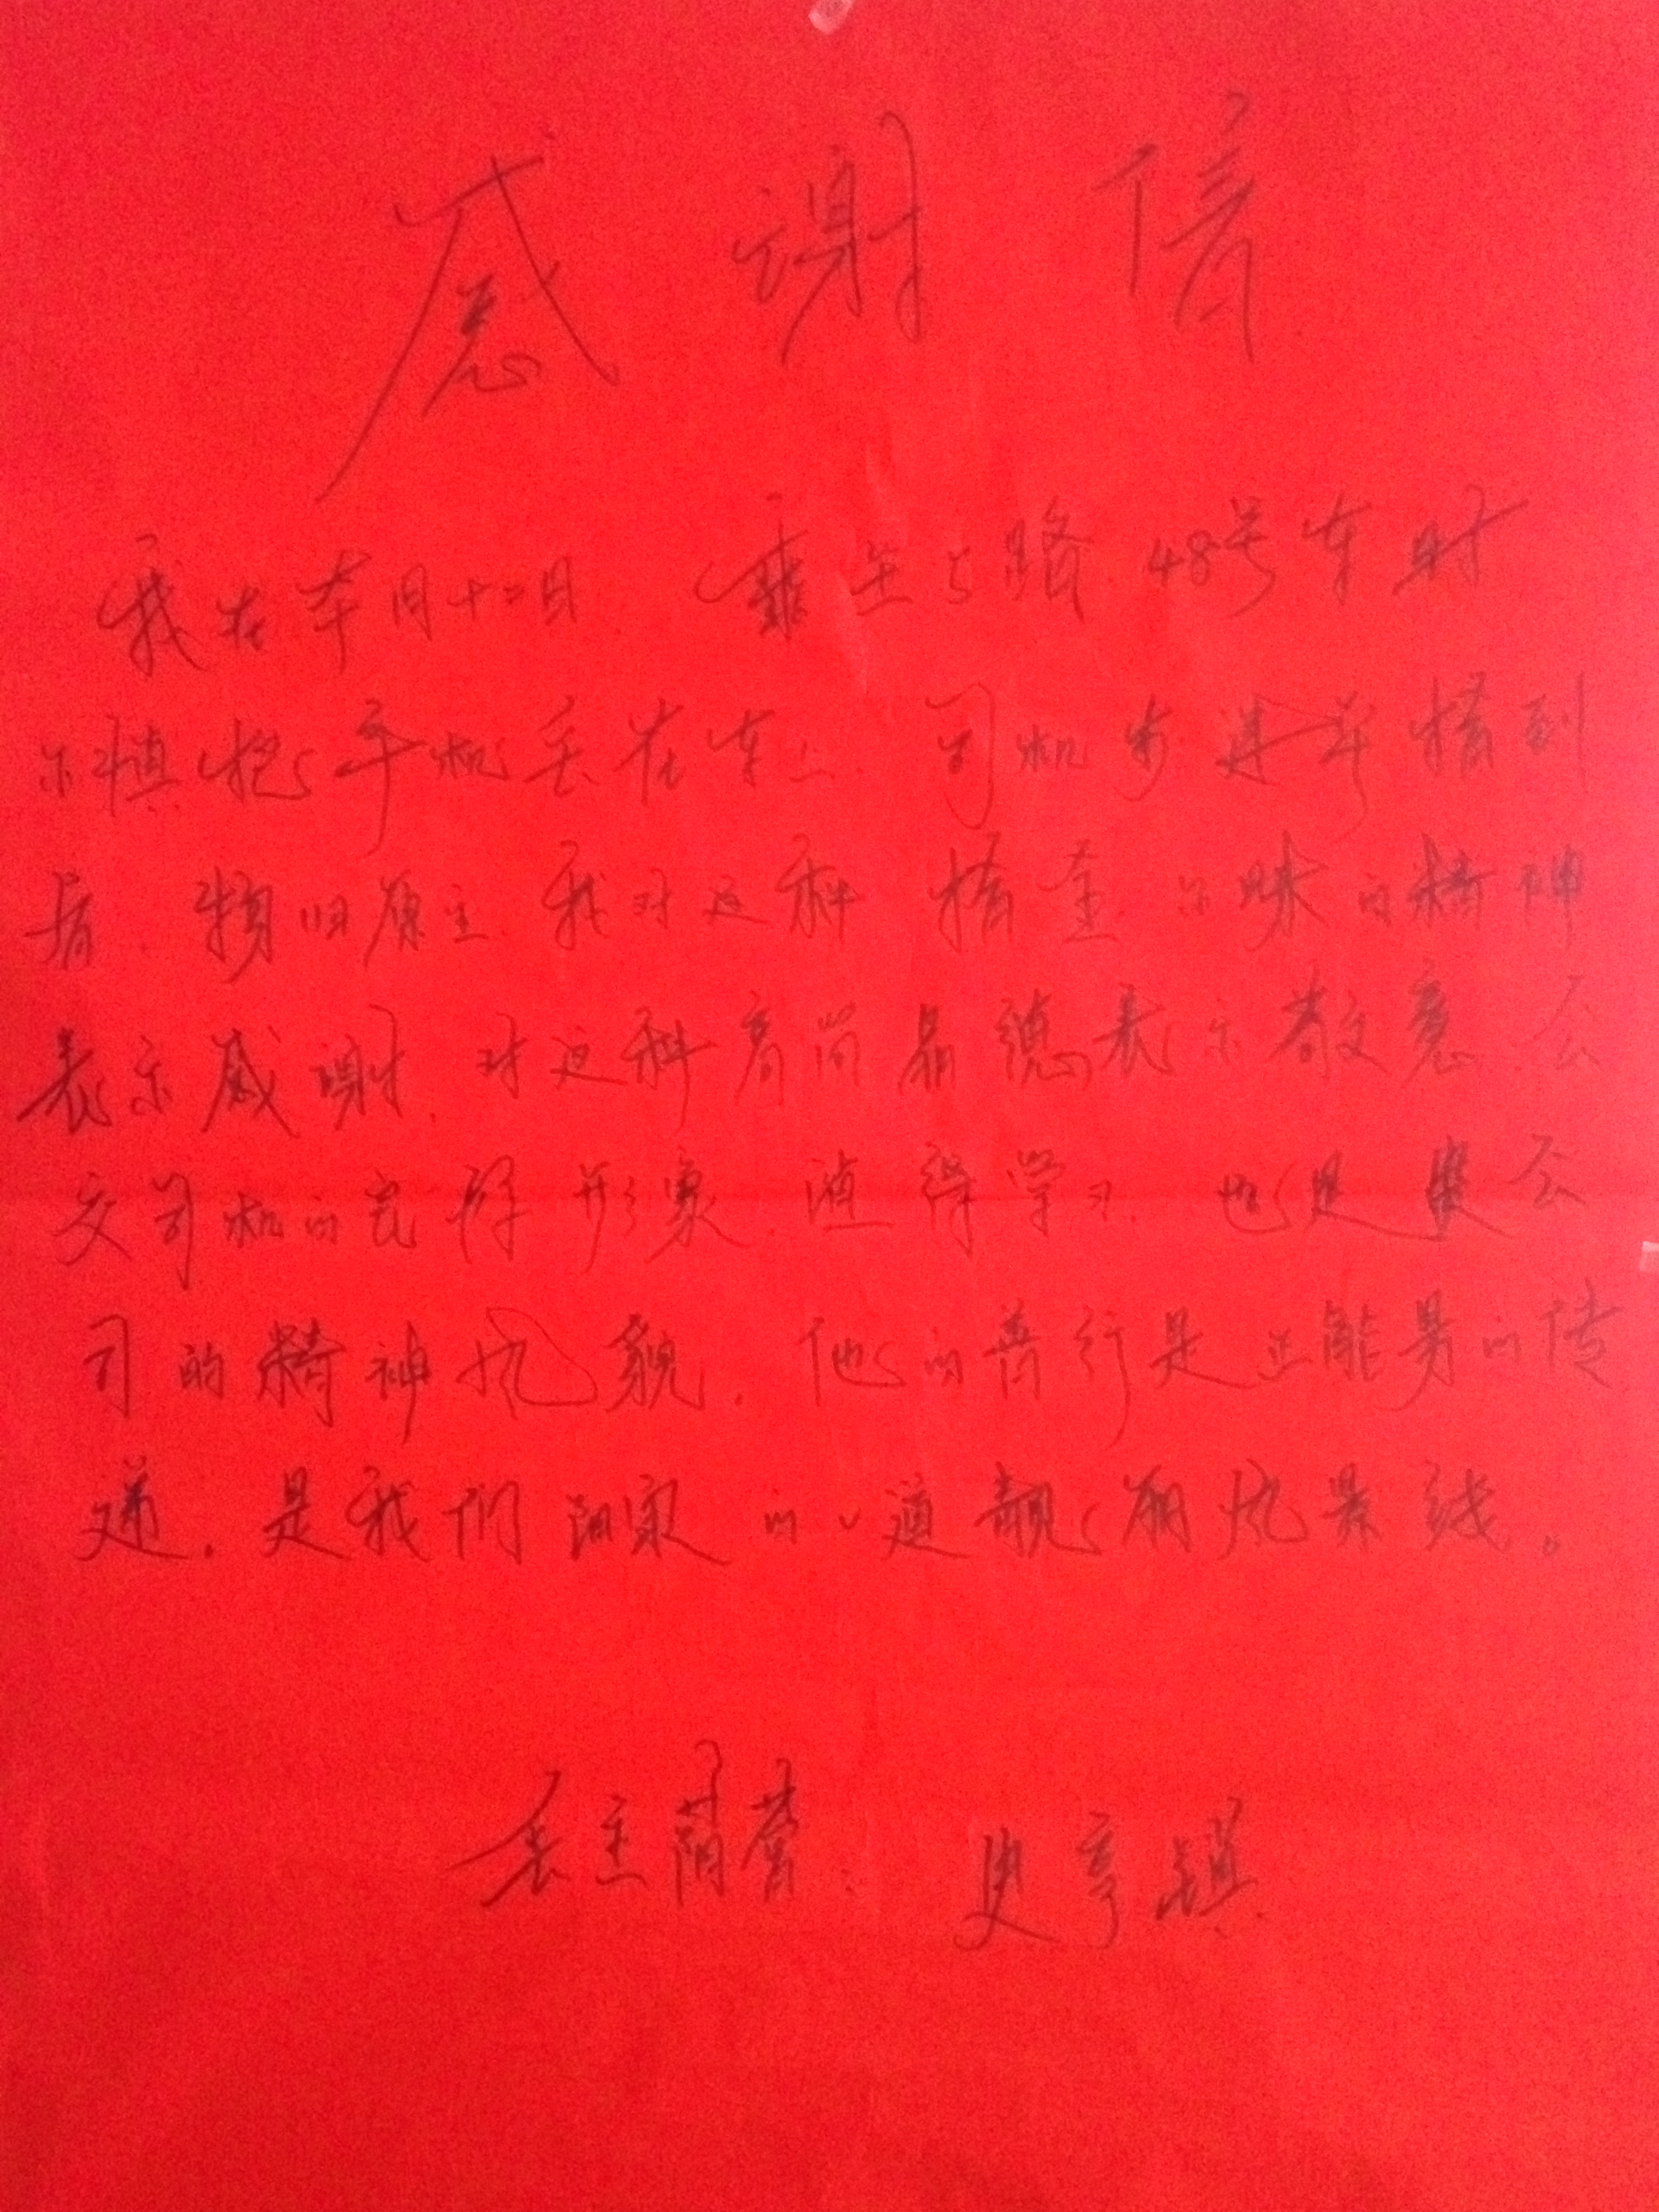 感谢信
我在本月十二日 乘坐5路 48号车时
不慎把手机丢在车上 司机步进军拾到
后 物归原主 我对这种 拾金不昧的精神
表示感谢 对这种高尚品德表示敬意 公
交司机的光辉形象 值得学习 也是贵公
司的精神风貌. 他的善行是正能量的传
递. 是我们阳泉的一道靓丽风景线。
失主荫营: 史亨镇